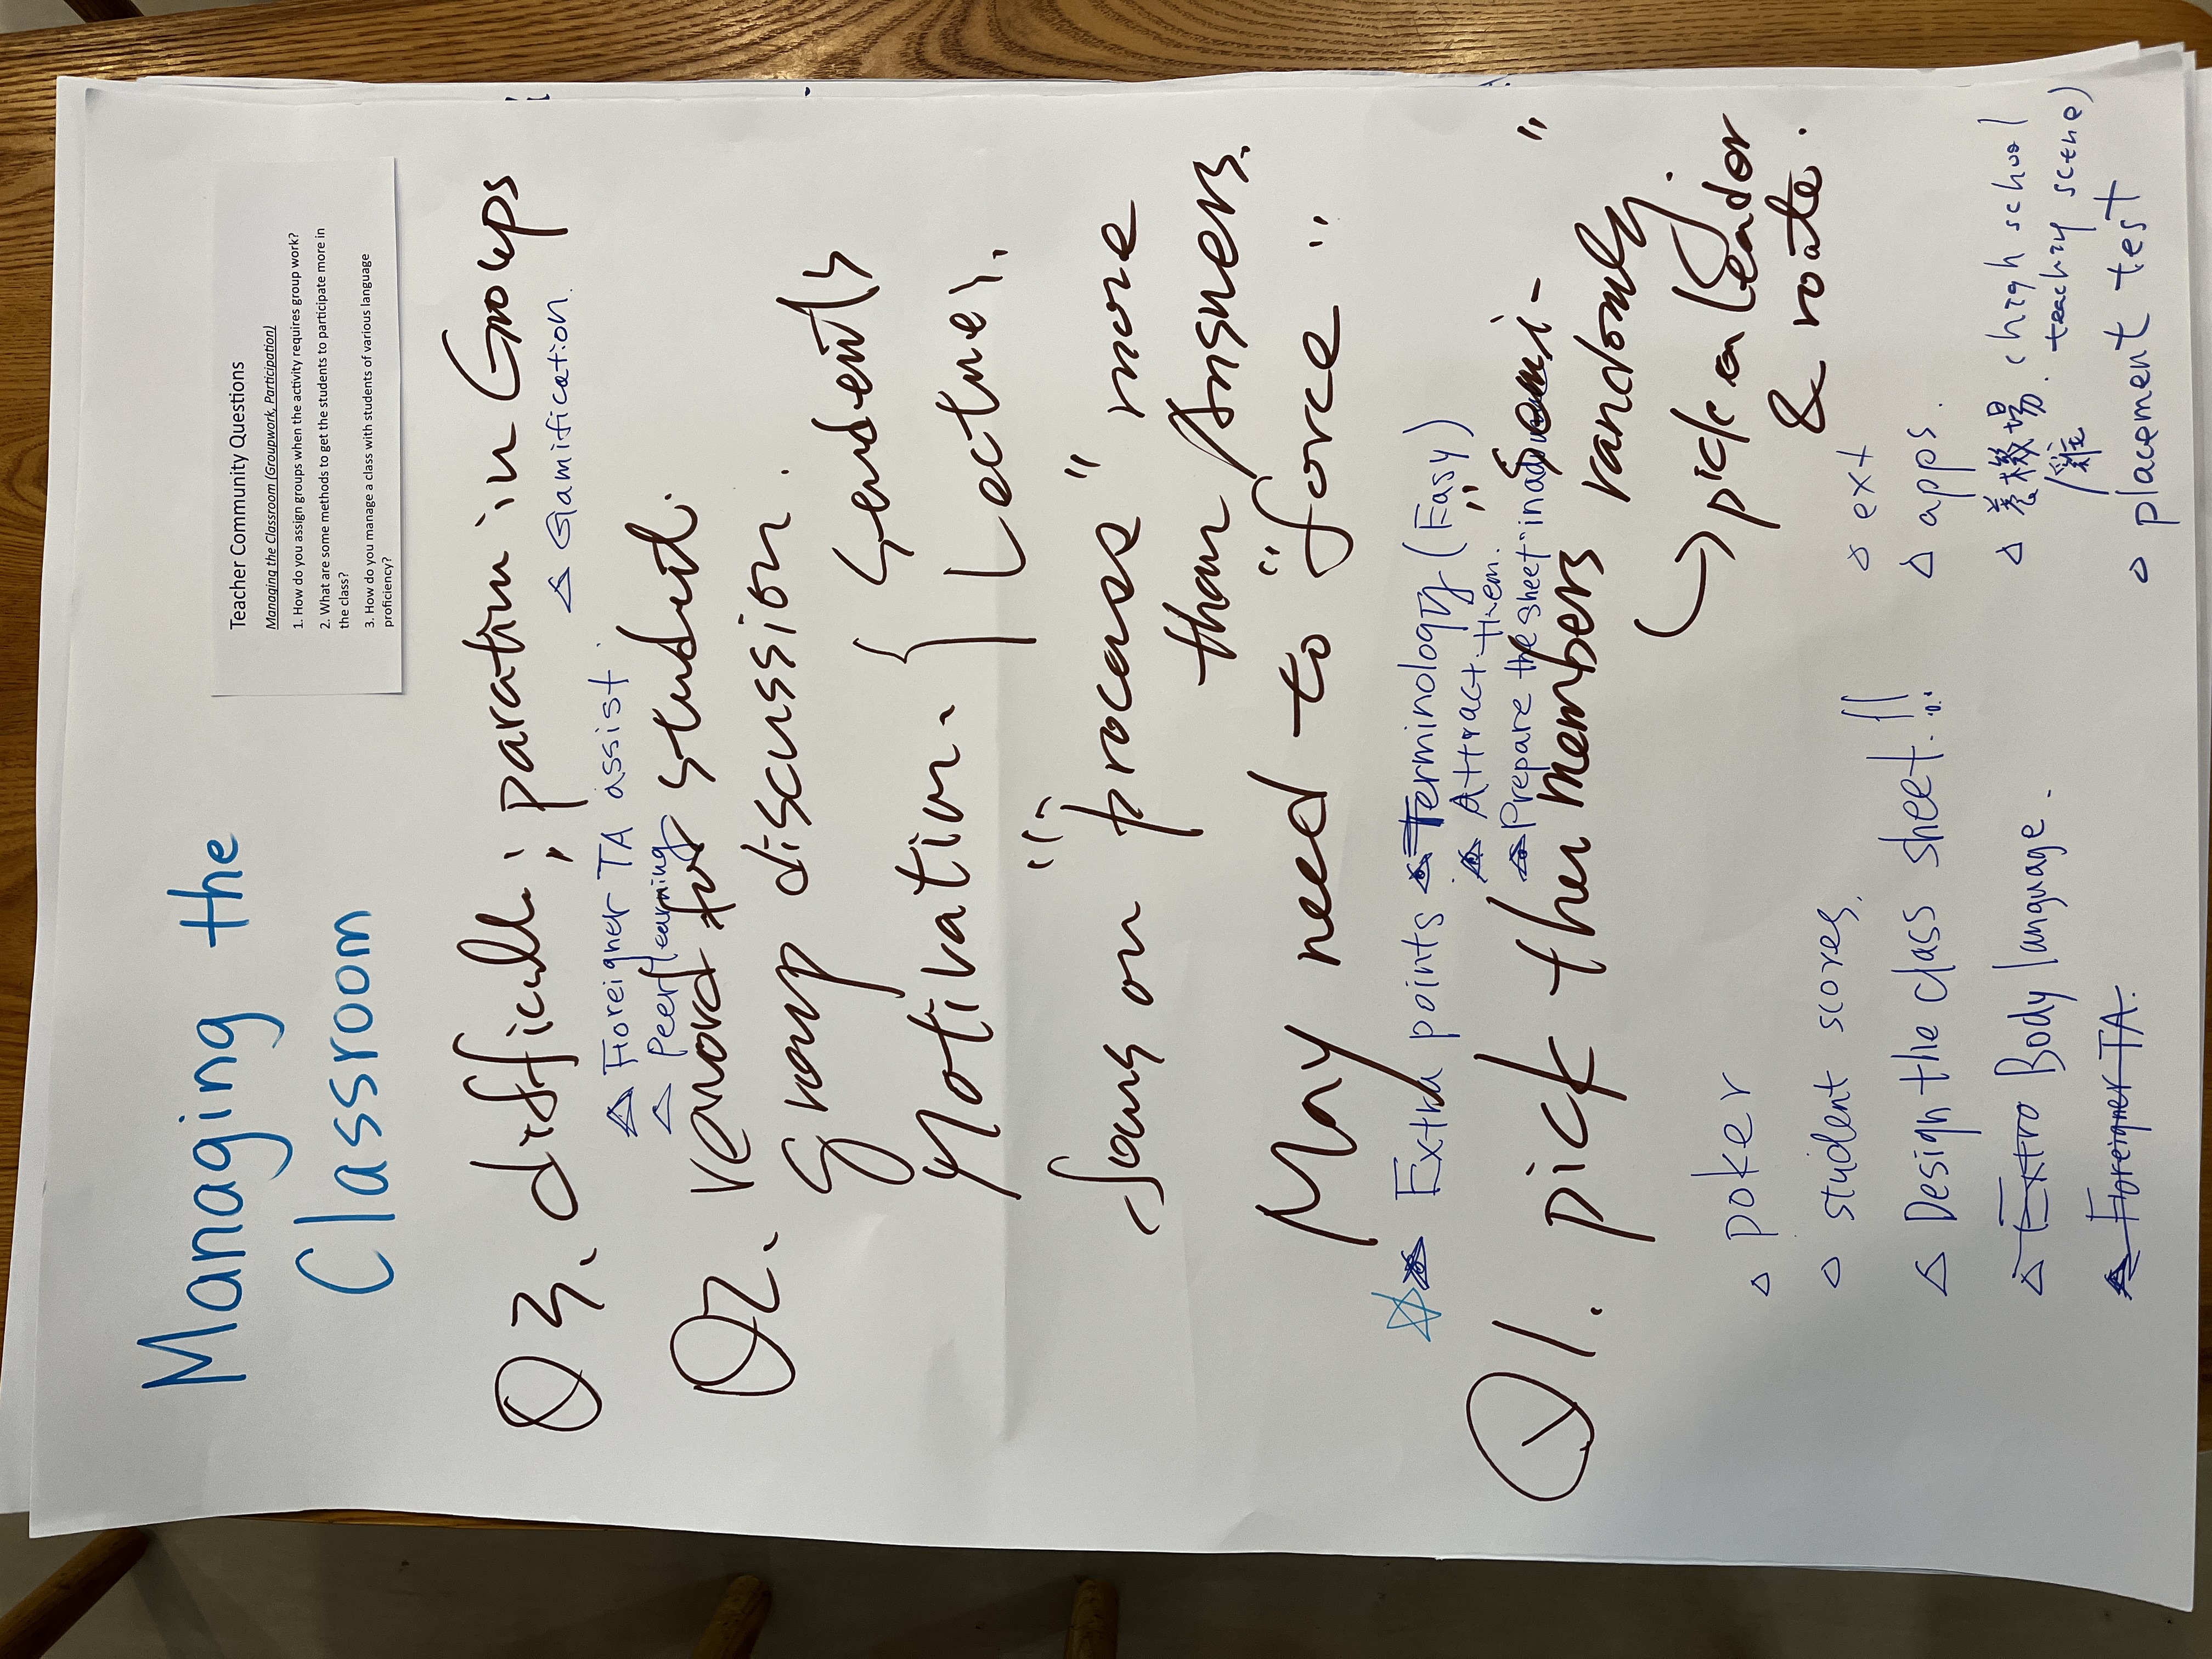 Managing the
Classroom
Teacher Community Questions
Managing the Classroom (Groupwork, Participation)
1. How do you assign groups when the activity requires group work?
2. What are some methods to get the students to participate more in
the class?
3. How do you manage a class with students of various language
proficiency?
Q3. difficult ; paration in Groups
△ Gamification.
△ Fioreigner TA assist.
△ Peer learning
Q2. reward for student.
group discussion.
Motivation. { Students
Lecturer.
focus on "process" more
than Answers.
May need to "force"
☆ Extra points
Terminology (Easy)
Attract them.
Prepare the sheet in
Q1. pick their members "semi-
randomly."
→ pick a leader
& rotate.
○ poker
○ student scores.
△ Design the class sheet.!!
△ Extra Body language.
Fioreigner TA.
○ ext
△ apps.
△ 養機場. (high school
/雞 teaching scene)
○ placement test